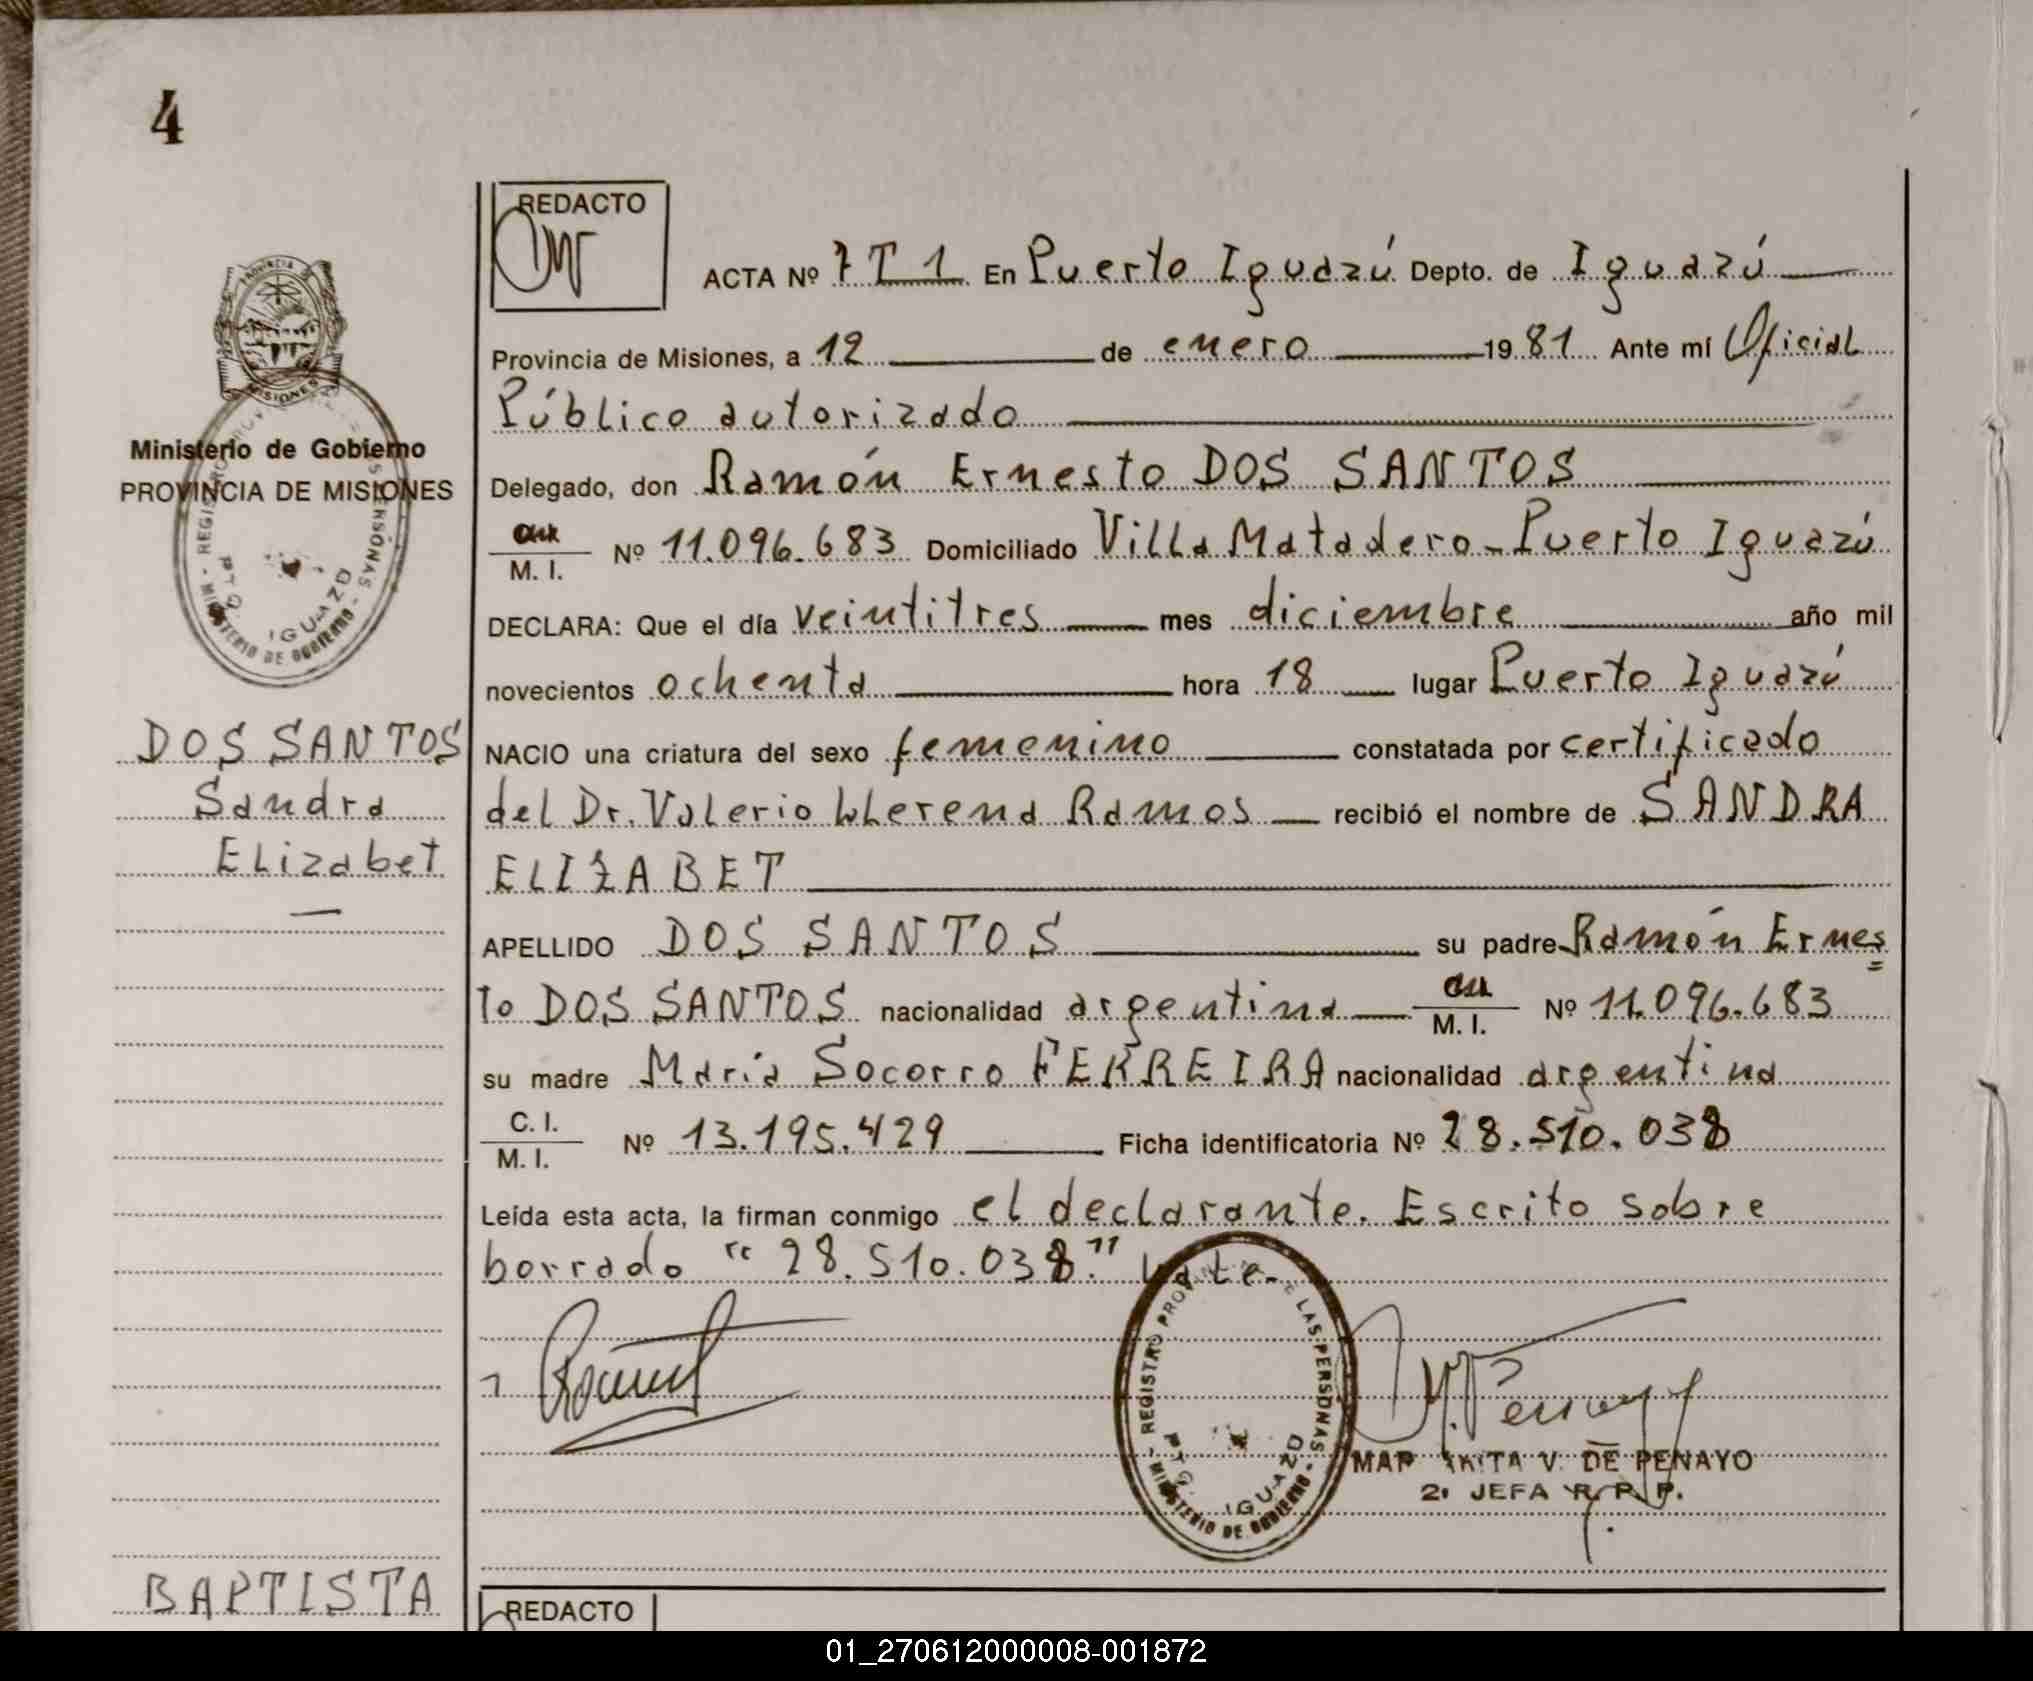 4
REDACTO
ACTA Nº 7 T 1 En Puerto Iguazú Depto. de Iguazú
Provincia de Misiones, a 12 de enero 1981 Ante mí Oficial
Público autorizado
Delegado, don Ramón Ernesto DOS SANTOS
M. I. Nº 11.096.683 Domiciliado Villa Matadero - Puerto Iguazú
DECLARA: Que el día veintitres mes diciembre año mil
novecientos ochenta hora 18 lugar Puerto Iguazú
NACIO una criatura del sexo femenino constatada por certificado
del Dr. Valerio Llerena Ramos recibió el nombre de SANDRA
ELIZABET
APELLIDO DOS SANTOS su padre Ramón Ernes
to DOS SANTOS nacionalidad argentina M. I. Nº 11.096.683
su madre María Socorro FERREIRA nacionalidad argentina
C. I.
M. I. Nº 13.195.429 Ficha identificatoria Nº 28.510.038
Leída esta acta, la firman conmigo el declarante. Escrito sobre
borrado "28.510.038." Vale.
V. DE PENAYO
2ª JEFA R. P. P.
REGISTRO PROVINCIAL DE LAS PERSONAS
PTO. IGUAZU
MINISTERIO DE GOBIERNO
PROVINCIA DE
MISIONES
Ministerio de Gobierno
PROVINCIA DE MISIONES
REGISTRO PROV PERSONAS
PTO. IGUAZU
MINISTERIO DE GOBIERNO
DOS SANTOS
Sandra
Elizabet
BAPTISTA
REDACTO
01_270612000008-001872